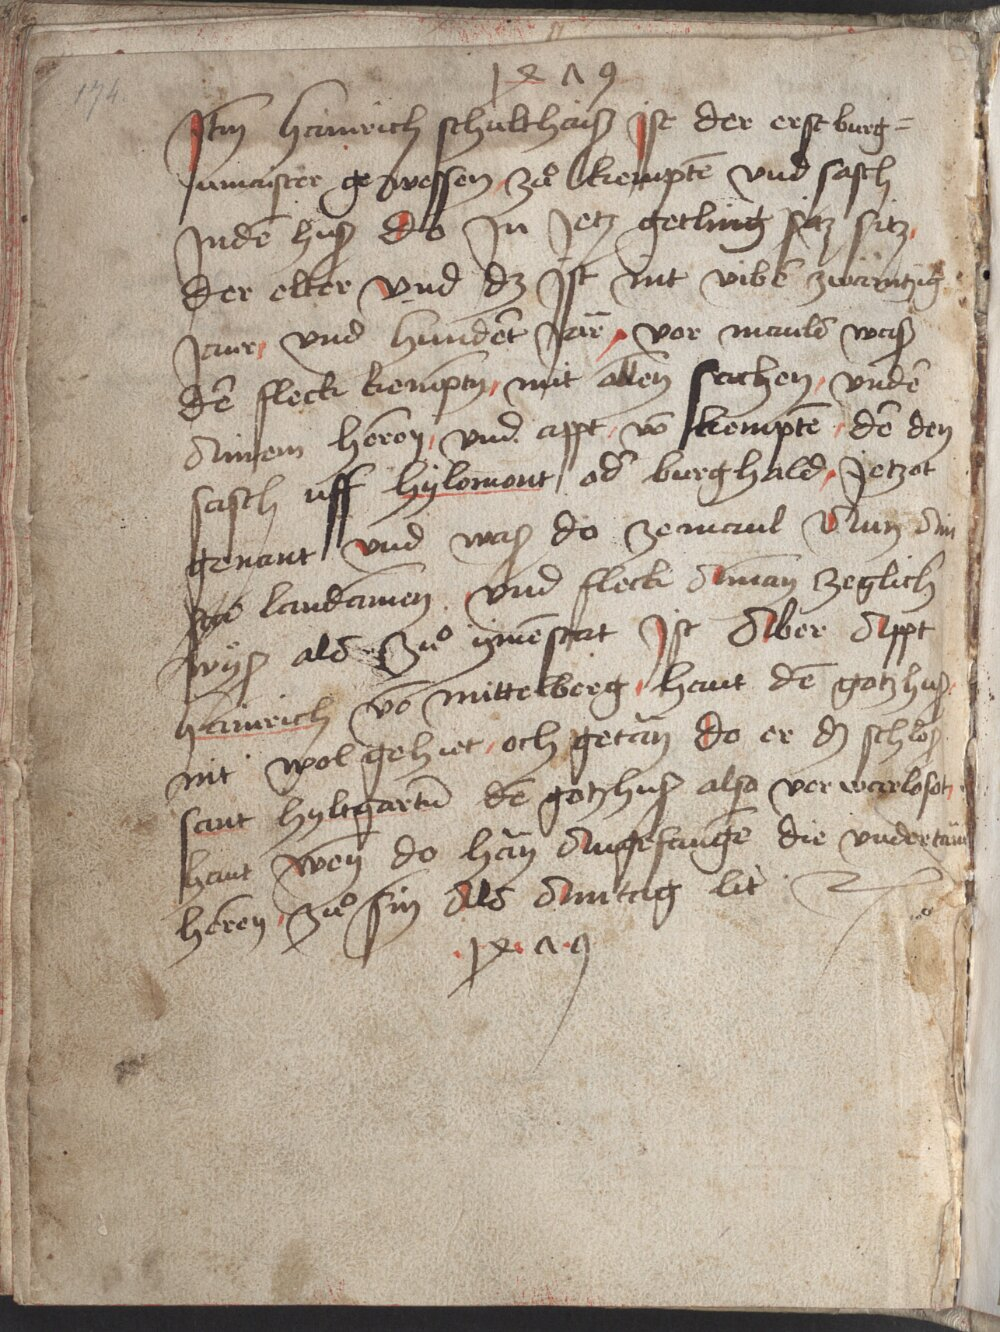 174.
1 4 7 9
Itm hainrich schulthaiß ist der erst burg=
ermaister gewessen zů kempte vnd sasch
Inde huß do In Jetz getling sitz
der elter vnd dz ist mit vibe zwaintzig
Jaur vnd hundet Jar vor mauls waß
de fleck kempty mit allen sachen vnde
ainem heren vnd appt vo kempte de den
sasch uff hylomont od burghald Jetzot
genant vnd waß do zemaul Ann ain
landamen vnd fleck aman zeglich
wyß als zů ymestat Ist Aber Appt
hainrich vo mittelberg haut de gotzhuß
nit wol gehiet och getan do er dz schloß
sant hyltgartn de gotzhuß also verwarlosot
haut wen do han angefange die vndertan
heren zů sin Als Amtzig lit
1 4 7 9